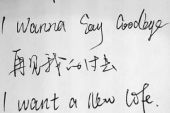 I wanna Say Goodbye
再见我的过去
I want a New Life.